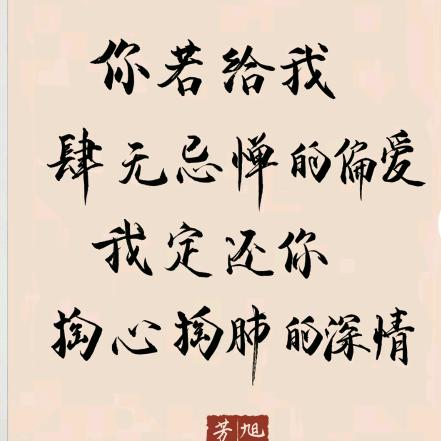 你若给我
肆无忌惮的偏爱
我定还你
掏心掏肺的深情
芳旭